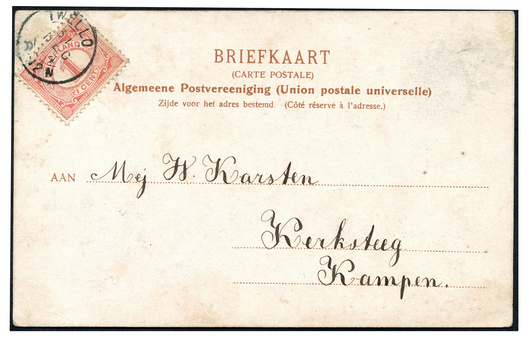 TWELLO
1
CENT
BRIEFKAART
(CARTE POSTALE)
Algemeene Postvereeniging (Union postale universelle)
Zijde voor het adres bestemd. (Côté réservé à l'adresse.)
AAN Mej W. Karsten
Kerksteeg
Kampen.